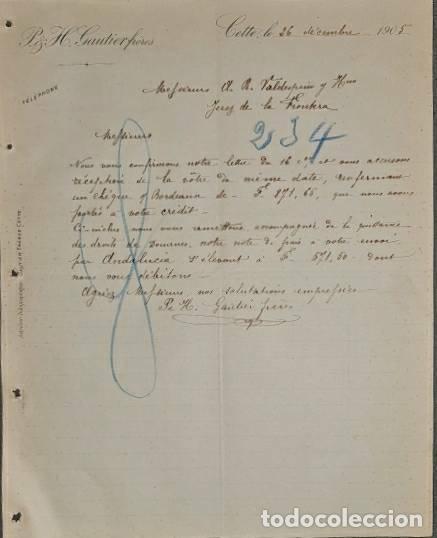 P. & H. Gautier frères
Cette, le 26 décembre 1905
TÉLÉPHONE
Messieurs A. R. Valdespino y Hno
Jerez de la Frontera
Messieurs
234
Nous vous confirmons notre lettre du 16 ct et vous accusons
réception de la vôtre du même date, renfermant
un chèque s/ Bordeaux de F. 871,65, que nous avons
portés à votre crédit.
Ci-inclus nous vous remettons, accompagnée de la quittance
des droits de Douanes, notre note de frais à votre envoi
par Andalucia s'élevant à F. 571,50 dont
nous vous débitons.
Agréez, Messieurs, nos salutations empressées
P & H. Gautier frères
todocoleccion.net